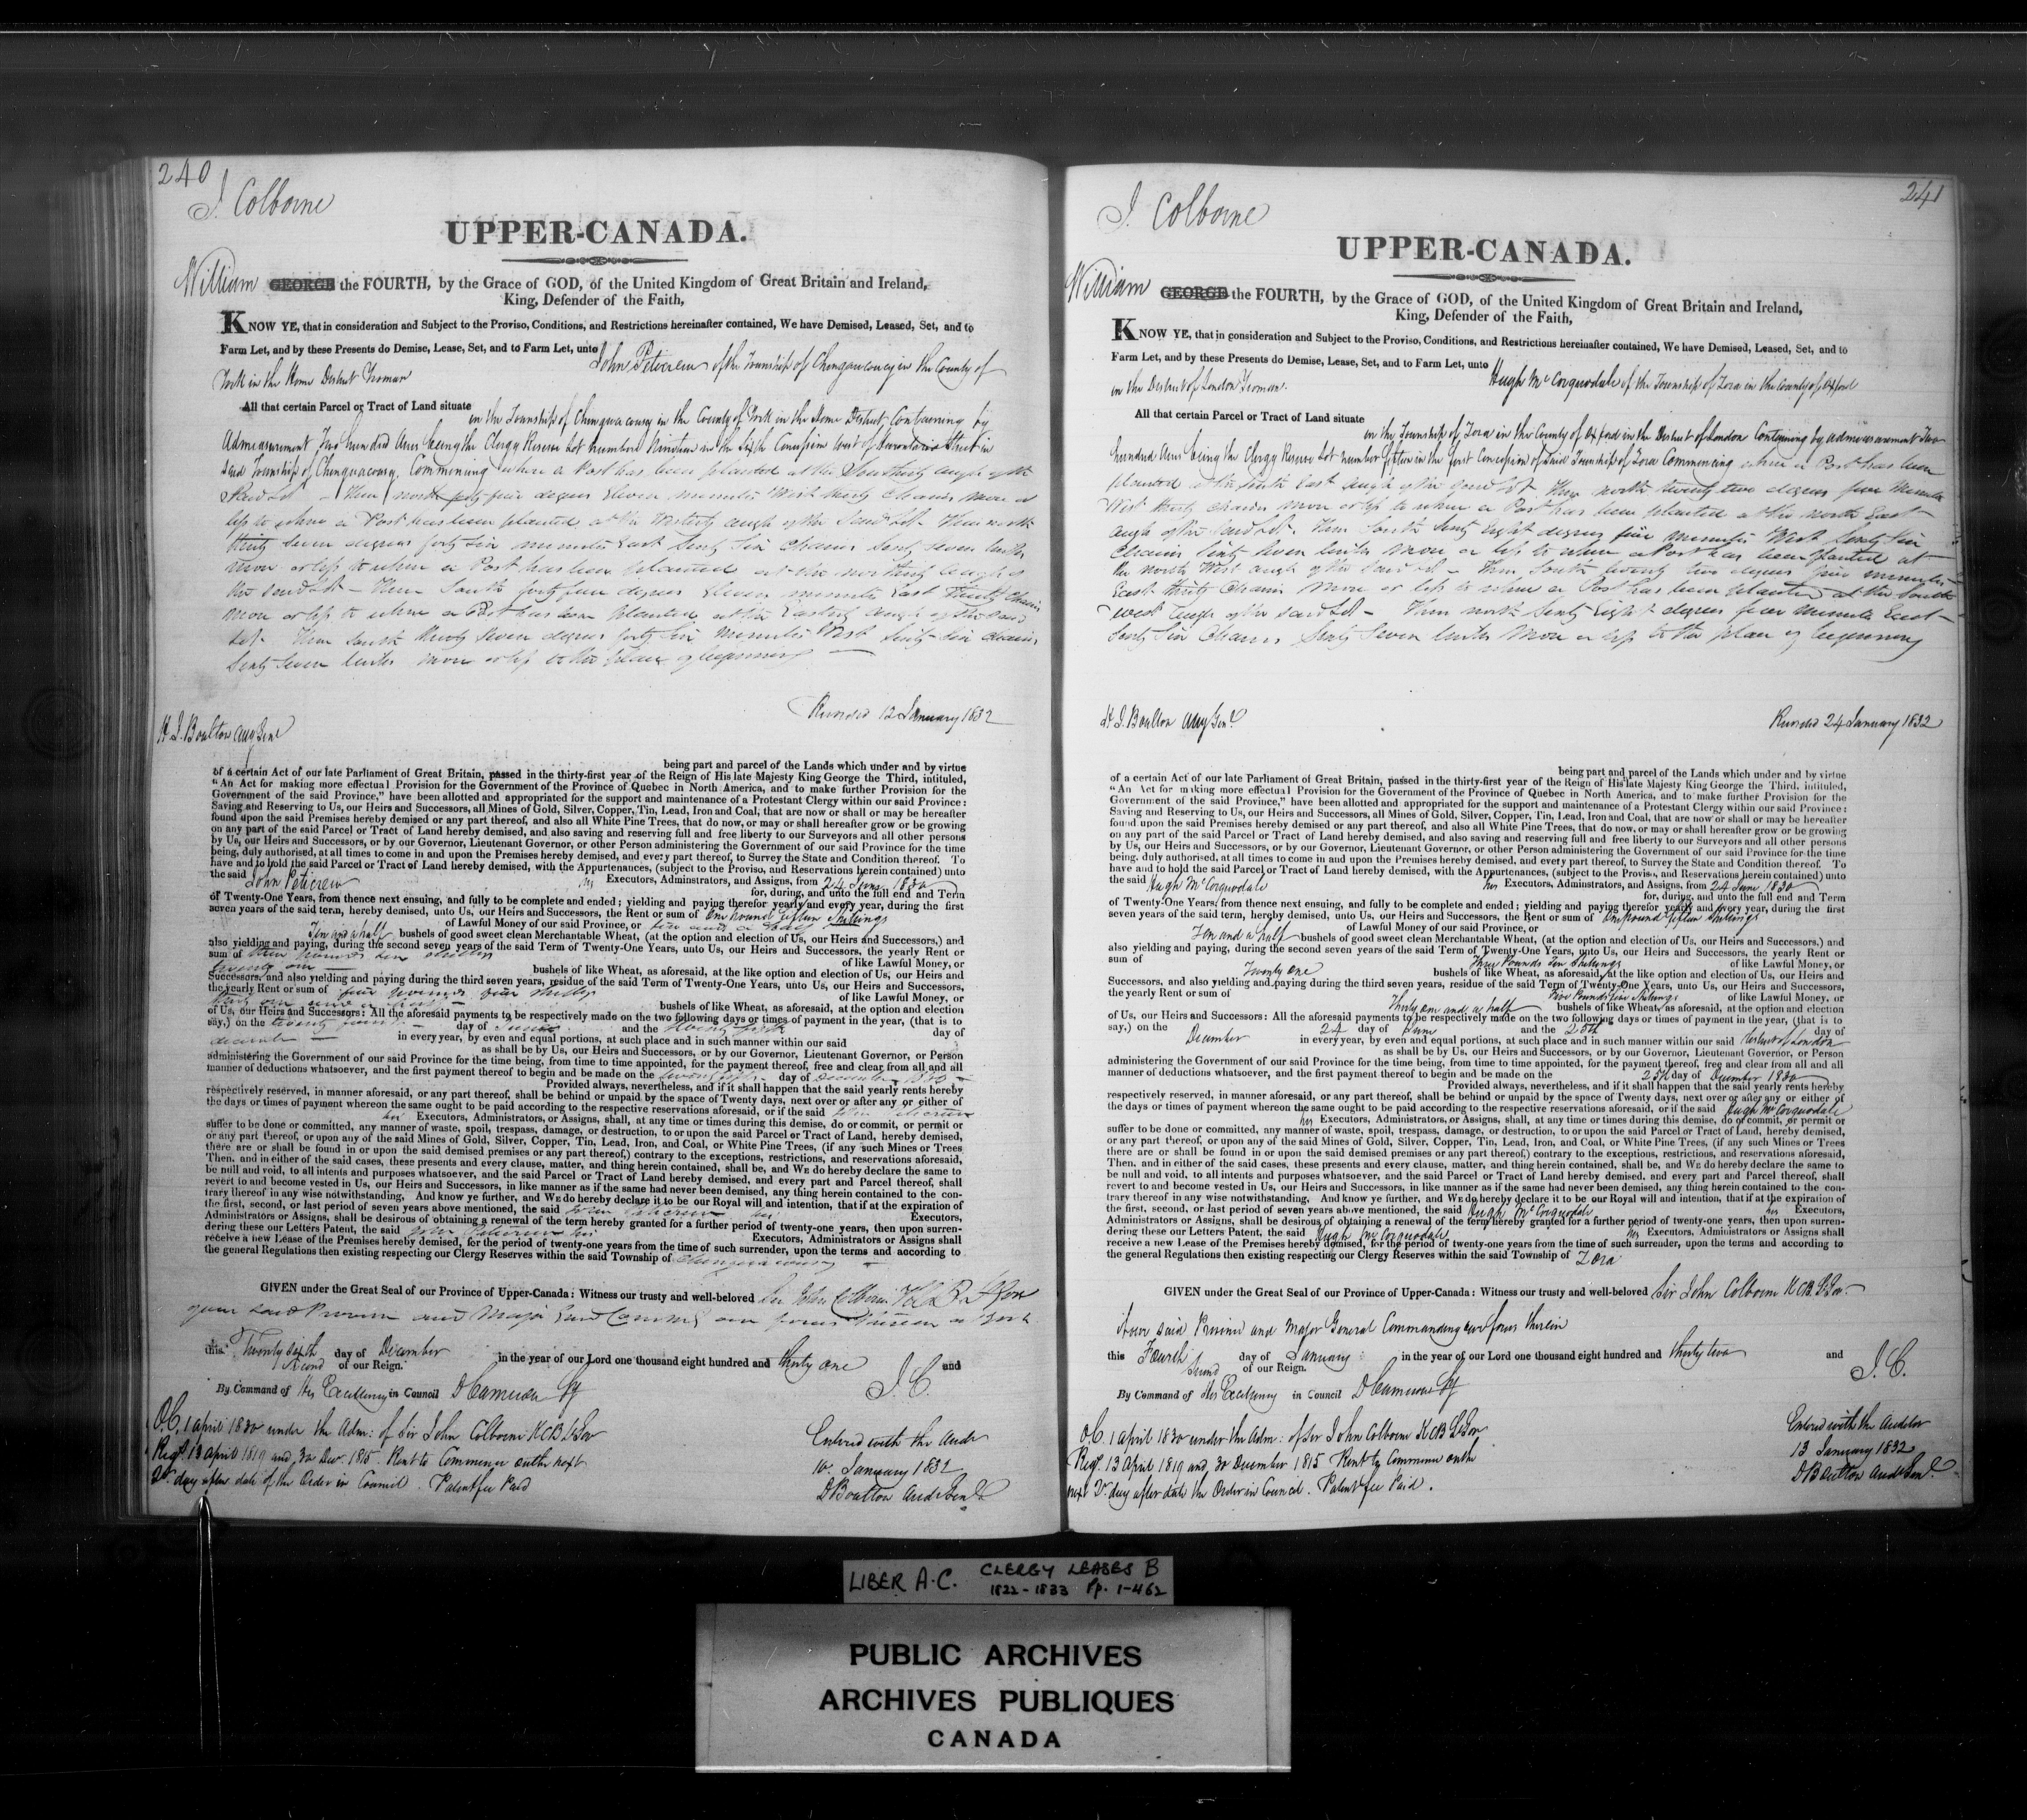 240
J. Colborne
UPPER-CANADA.
William GEORGE the FOURTH, by the Grace of GOD, of the United Kingdom of Great Britain and Ireland,
King, Defender of the Faith,
KNOW YE, that in consideration and Subject to the Proviso, Conditions, and Restrictions hereinafter contained, We have Demised, Leased, Set, and to
Farm Let, and by these Presents do Demise, Lease, Set, and to Farm Let, unto John Peticrew of the Township of Chinguacousy in the County of
York in the Home District Yeoman
All that certain Parcel or Tract of Land situate in the Township of Chinguacousy in the County of York in the Home District, Containing by
Admeasurement Two hundred Acres being the Clergy Reserve Lot number Nineteen in the Sixth Concession West of Hurontario Street in
Said Township of Chinguacousy. Commencing where a Post has been planted at the Southerly angle of the
Said Lot – Then north forty four degrees Eleven minutes West thirty Chains more or
less to where a Post has been planted at the Westerly angle of the Said Lot. Then north
thirty seven degrees forty Six minutes East Sixty Six Chains Sixty Seven links
more or less to where a Post has been planted at the northerly angle of
the Said Lot – Then South forty four degrees Eleven minutes East Thirty Chains
more or less to where a Post has been planted at the Easterly angle of the Said
Lot. Then South thirty Seven degrees forty Six Minutes West Sixty Six Chains
Sixty Seven links more or less to the place of beginning
Recorded 12 January 1832
H. J. Boulton Atty Genl
being part and parcel of the Lands which under and by virtue
of a certain Act of our late Parliament of Great Britain, passed in the thirty-first year of the Reign of His late Majesty King George the Third, intituled,
“An Act for making more effectual Provision for the Government of the Province of Quebec in North America, and to make further Provision for the
Government of the said Province,” have been allotted and appropriated for the support and maintenance of a Protestant Clergy within our said Province:
Saving and Reserving to Us, our Heirs and Successors, all Mines of Gold, Silver, Copper, Tin, Lead, Iron and Coal, that are now or shall or may be hereafter
found upon the said Premises hereby demised or any part thereof, and also all White Pine Trees, that do now, or may or shall hereafter grow or be growing
on any part of the said Parcel or Tract of Land hereby demised, and also saving and reserving full and free liberty to our Surveyors and all other persons
by Us, our Heirs and Successors, or by our Governor, Lieutenant Governor, or other Person administering the Government of our said Province for the time
being, duly authorised, at all times to come in and upon the Premises hereby demised, and every part thereof, to Survey the State and Condition thereof. To
have and to hold the said Parcel or Tract of Land hereby demised, with the Appurtenances, (subject to the Proviso, and Reservations herein contained) unto
the said John Peticrew his Executors, Adminstrators, and Assigns, from 24 June 1830
for, during, and unto the full end and Term
of Twenty-One Years, from thence next ensuing, and fully to be complete and ended; yielding and paying therefor yearly and every year, during the first
seven years of the said term, hereby demised, unto Us, our Heirs and Successors, the Rent or sum of One pound fifteen Shillings
of Lawful Money of our said Province, or ten and a half
Ten and a half bushels of good sweet clean Merchantable Wheat, (at the option and election of Us, our Heirs and Successors,) and
also yielding and paying, during the second seven years of the said Term of Twenty-One Years, unto Us, our Heirs and Successors, the yearly Rent or
sum of three pounds ten shillings of like Lawful Money, or
twenty one bushels of like Wheat, as aforesaid, at the like option and election of Us, our Heirs and
Successors, and also yielding and paying during the third seven years, residue of the said Term of Twenty-One Years, unto Us, our Heirs and Successors,
the yearly Rent or sum of five pounds five shillings of like Lawful Money, or
thirty one and a half bushels of like Wheat, as aforesaid, at the option and election
of Us, our Heirs and Successors: All the aforesaid payments to be respectively made on the two following days or times of payment in the year, (that is to
say,) on the twenty fourth day of June and the twenty fifth day of
december in every year, by even and equal portions, at such place and in such manner within our said
as shall be by Us, our Heirs and Successors, or by our Governor, Lieutenant Governor, or Person
administering the Government of our said Province for the time being, from time to time appointed, for the payment thereof, free and clear from all and all
manner of deductions whatsoever, and the first payment thereof to begin and be made on the twenty fifth day of december 1830
Provided always, nevertheless, and if it shall happen that the said yearly rents hereby
respectively reserved, in manner aforesaid, or any part thereof, shall be behind or unpaid by the space of Twenty days, next over or after any or either of
the days or times of payment whereon the same ought to be paid according to the respective reservations aforesaid, or if the said John Peticrew
his Executors, Administrators, or Assigns, shall, at any time or times during this demise, do or commit, or permit or
suffer to be done or committed, any manner of waste, spoil, trespass, damage, or destruction, to or upon the said Parcel or Tract of Land, hereby demised,
or any part thereof, or upon any of the said Mines of Gold, Silver, Copper, Tin, Lead, Iron, and Coal, or White Pine Trees, (if any such Mines or Trees
there are or shall be found in or upon the said demised premises or any part thereof,) contrary to the exceptions, restrictions, and reservations aforesaid,
Then, and in either of the said cases, these presents and every clause, matter, and thing herein contained, shall be, and WE do hereby declare the same to
be null and void, to all intents and purposes whatsoever, and the said Parcel or Tract of Land hereby demised, and every part and Parcel thereof, shall
revert to and become vested in Us, our Heirs and Successors, in like manner as if the same had never been demised, any thing herein contained to the con-
trary thereof in any wise notwithstanding. And know ye further, and WE do hereby declare it to be our Royal will and intention, that if at the expiration of
the first, second, or last period of seven years above mentioned, the said John Peticrew his Executors,
Administrators or Assigns, shall be desirous of obtaining a renewal of the term hereby granted for a further period of twenty-one years, then upon surren-
dering these our Letters Patent, the said John Peticrew his Executors, Administrators or Assigns shall
receive a new Lease of the Premises hereby demised, for the period of twenty-one years from the time of such surrender, upon the terms and according to
the general Regulations then existing respecting our Clergy Reserves within the said Township of Chinguacousy
GIVEN under the Great Seal of our Province of Upper-Canada: Witness our trusty and well-beloved Sir John Colborne KCB Lt Gov
of our said Province and Major Genl Commg our forces therein at York
this Twenty sixth day of December in the year of our Lord one thousand eight hundred and thirty one and
Second of our Reign. J. C.
By Command of His Excellency in Council D Cameron Sy
O.C. 1 April 1830 under the Adm: of Sir John Colborne KCB Lt Gov
Regl. 13 April 1819 and 30 Decr. 1815. Rent to Commence on the next
Qr day after date of the Order in Council. Patent fee Paid
Entered with the Audr
10. January 1832
D Boulton Aud Genl
241
J. Colborne
UPPER-CANADA.
William GEORGE the FOURTH, by the Grace of GOD, of the United Kingdom of Great Britain and Ireland,
King, Defender of the Faith,
KNOW YE, that in consideration and Subject to the Proviso, Conditions, and Restrictions hereinafter contained, We have Demised, Leased, Set, and to
Farm Let, and by these Presents do Demise, Lease, Set, and to Farm Let, unto Hugh McCorquodale of the Township of Zora in the County of Oxford
in the District of London Yeoman.
All that certain Parcel or Tract of Land situate in the Township of Zora in the County of Oxford in the District of London Containing by admeasurement Two
hundred Acres being the Clergy Reserve Lot number fifteen in the first Concession of Said Township of Zora Commencing where a Post has been
planted at the South East angle of the said Lot. Then north twenty two degrees four Minutes
West thirty Chains more or less to where a Post has been planted at the north East
angle of the Said Lot. Then South Sixty Eight degrees four minutes West Sixty Six
Chains Sixty Seven links More or less to where a Post has been planted at
the north West angle of the Said Lot – Then South twenty two degrees four minutes
East thirty Chains More or less to where a Post has been planted at the South
west angle of the said Lot – Then north Sixty Eight degrees four Minutes East –
Sixty Six Chains Sixty Seven links More or less to the place of beginning
H. J. Boulton Atty Genl.
Recorded 24 January 1832
being part and parcel of the Lands which under and by virtue
of a certain Act of our late Parliament of Great Britain, passed in the thirty-first year of the Reign of His late Majesty King George the Third, intituled,
“An Act for making more effectual Provision for the Government of the Province of Quebec in North America, and to make further Provision for the
Government of the said Province,” have been allotted and appropriated for the support and maintenance of a Protestant Clergy within our said Province:
Saving and Reserving to Us, our Heirs and Successors, all Mines of Gold, Silver, Copper, Tin, Lead, Iron and Coal, that are now or shall or may be hereafter
found upon the said Premises hereby demised or any part thereof, and also all White Pine Trees, that do now, or may or shall hereafter grow or be growing
on any part of the said Parcel or Tract of Land hereby demised, and also saving and reserving full and free liberty to our Surveyors and all other persons
by Us, our Heirs and Successors, or by our Governor, Lieutenant Governor, or other Person administering the Government of our said Province for the time
being, duly authorised, at all times to come in and upon the Premises hereby demised, and every part thereof, to Survey the State and Condition thereof. To
have and to hold the said Parcel or Tract of Land hereby demised, with the Appurtenances, (subject to the Proviso, and Reservations herein contained) unto
the said Hugh McCorquodale his Executors, Adminstrators, and Assigns, from 24 June 1830
for, during, and unto the full end and Term
of Twenty-One Years, from thence next ensuing, and fully to be complete and ended; yielding and paying therefor yearly and every year, during the first
seven years of the said term, hereby demised, unto Us, our Heirs and Successors, the Rent or sum of One pound fifteen Shillings
of Lawful Money of our said Province, or
Ten and a half bushels of good sweet clean Merchantable Wheat, (at the option and election of Us, our Heirs and Successors,) and
also yielding and paying, during the second seven years of the said Term of Twenty-One Years, unto Us, our Heirs and Successors, the yearly Rent or
sum of Three Pounds Ten Shillings of like Lawful Money, or
Twenty One bushels of like Wheat, as aforesaid, at the like option and election of Us, our Heirs and
Successors, and also yielding and paying during the third seven years, residue of the said Term of Twenty-One Years, unto Us, our Heirs and Successors,
the yearly Rent or sum of Five Pounds five Shillings of like Lawful Money, or
Thirty one and a half bushels of like Wheat, as aforesaid, at the option and election
of Us, our Heirs and Successors: All the aforesaid payments to be respectively made on the two following days or times of payment in the year, (that is to
say,) on the 24 day of June and the 25th day of
December in every year, by even and equal portions, at such place and in such manner within our said District of London
as shall be by Us, our Heirs and Successors, or by our Governor, Lieutenant Governor, or Person
administering the Government of our said Province for the time being, from time to time appointed, for the payment thereof, free and clear from all and all
manner of deductions whatsoever, and the first payment thereof to begin and be made on the 25th day of December 1830
Provided always, nevertheless, and if it shall happen that the said yearly rents hereby
respectively reserved, in manner aforesaid, or any part thereof, shall be behind or unpaid by the space of Twenty days, next over or after any or either of
the days or times of payment whereon the same ought to be paid according to the respective reservations aforesaid, or if the said Hugh McCorquodale
his Executors, Administrators, or Assigns, shall, at any time or times during this demise, do or commit, or permit or
suffer to be done or committed, any manner of waste, spoil, trespass, damage, or destruction, to or upon the said Parcel or Tract of Land, hereby demised,
or any part thereof, or upon any of the said Mines of Gold, Silver, Copper, Tin, Lead, Iron, and Coal, or White Pine Trees, (if any such Mines or Trees
there are or shall be found in or upon the said demised premises or any part thereof,) contrary to the exceptions, restrictions, and reservations aforesaid,
Then, and in either of the said cases, these presents and every clause, matter, and thing herein contained, shall be, and WE do hereby declare the same to
be null and void, to all intents and purposes whatsoever, and the said Parcel or Tract of Land hereby demised, and every part and Parcel thereof, shall
revert to and become vested in Us, our Heirs and Successors, in like manner as if the same had never been demised, any thing herein contained to the con-
trary thereof in any wise notwithstanding. And know ye further, and WE do hereby declare it to be our Royal will and intention, that if at the expiration of
the first, second, or last period of seven years above mentioned, the said Hugh McCorquodale his Executors,
Administrators or Assigns, shall be desirous of obtaining a renewal of the term hereby granted for a further period of twenty-one years, then upon surren-
dering these our Letters Patent, the said Hugh McCorquodale his Executors, Administrators or Assigns shall
receive a new Lease of the Premises hereby demised, for the period of twenty-one years from the time of such surrender, upon the terms and according to
the general Regulations then existing respecting our Clergy Reserves within the said Township of Zora
GIVEN under the Great Seal of our Province of Upper-Canada: Witness our trusty and well-beloved Sir John Colborne KCB Lt Gov.
of our said Province and Major General Commanding our forces therein
this Fourth day of January in the year of our Lord one thousand eight hundred and thirty two and
Second of our Reign. J. C.
By Command of His Excellency in Council D Cameron Sy
O.C. 1 April 1830 under the Adm: of Sir John Colborne KCB Lt Gov
Regl. 13 April 1819 and 30 December 1815 Rent to Commence on the
next Qr day after date the Order in Council. Patent fee Paid.
Entered with the Auditor
13 January 1832
D Boulton Aud Genl.
LIBER A.C. CLERGY LEASES B
1822-1833 Pp. 1-462
PUBLIC ARCHIVES
ARCHIVES PUBLIQUES
CANADA